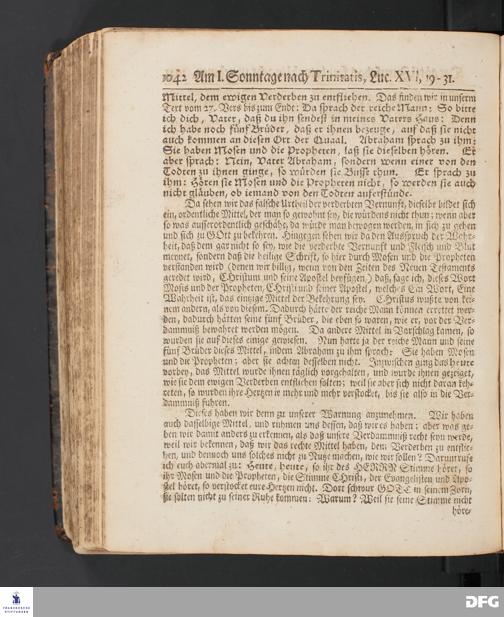 1042 Am I. Sonntage nach Trinitatis, Luc. XVI, 19-31.
Mittel, dem ewigen Verderben zu entfliehen. Das finden wir in unserm
Text vom 27. Vers bis zum Ende: Da sprach der reiche Mann: So bitte
ich dich, Vater, daß du ihn sendest in meines Vaters Haus: Denn
ich habe noch fünf Brüder, daß er ihnen bezeuge, auf daß sie nicht
auch kommen an diesen Ort der Quaal. Abraham sprach zu ihm:
Sie haben Mosen und die Propheten, laß sie dieselben hören. Er
aber sprach: Nein, Vater Abraham, sondern wenn einer von den
Todten zu ihnen gienge, so würden sie Busse thun. Er sprach zu
ihm: Hören sie Mosen und die Propheten nicht, so werden sie auch
nicht gläuben, ob iemand von den Todten auferstünde.
Da sehen wir das falsche Urtheil der verderbten Vernunft, dieselbe bildet sich
ein, ordentliche Mittel, der man so gewohnt sey, die würdens nicht thun; wenn aber
so was ausserordentlich geschähe, da würde man bewogen werden, in sich zu gehen
und sich zu GOtt zu bekehren. Hingegen sehen wir da den Ausspruch der Wahr-
heit, daß dem gar nicht so sey, wie die verderbte Vernunft und Fleisch und Blut
meynet, sondern daß die heilige Schrift, so hier durch Mosen und die Propheten
verstanden wird (denen wir billig, wenn von den Zeiten des Neuen Testaments
geredet wird, CHristum und seine Apostel beyfügen) daß, sage ich, dieses Wort
Mosis und der Propheten, CHristi und seiner Apostel, welches Ein Wort, Eine
Wahrheit ist, das einzige Mittel der Bekehrung sey. CHristus wußte von kei-
nem andern, als von diesem. Dadurch hätte der reiche Mann können errettet wer-
den, dadurch hätten seine fünf Brüder, die eben so waren, wie er, vor der Ver-
dammniß bewahret werden mögen. Da andere Mittel in Vorschlag kamen, so
wurden sie auf dieses einige gewiesen. Nun hatte ja der reiche Mann und seine
fünf Brüder dieses Mittel, indem Abraham zu ihm sprach: Sie haben Mosen
und die Propheten; aber sie achten desselben nicht. Inzwischen ging das heute
vorbey, das Mittel wurde ihnen täglich vorgehalten, und wurde ihnen gezeiget,
wie sie dem ewigen Verderben entfliehen solten; weil sie aber sich nicht daran keh-
reten, so wurden ihre Hertzen ie mehr und mehr verstocket, bis sie also in die Ver-
dammniß fuhren.
Dieses haben wir denn zu unserer Warnung anzunehmen. Wir haben
auch dasselbige Mittel, und rühmen uns dessen, daß wir es haben: aber was ge-
ben wir damit anders zu erkennen, als daß unsere Verdammniß recht seyn werde,
weil wir bekennen, daß wir das rechte Mittel haben, dem Verderben zu entflie-
hen, und dennoch uns solches nicht zu Nutze machen, wie wir sollen? Darum rufe
ich euch abermal zu: Heute, heute, so ihr des HERRN Stimme höret, so
ihr Mosen und die Propheten, die Stimme CHristi, der Evangelisten und Apo-
stel höret, so verstocket eure Hertzen nicht. Dort schwur GOTT in seinem Zorn,
sie solten nicht zu seiner Ruhe kommen: Warum? Weil sie seine Stimme nicht
höre-
FRANCKESCHE
STIFTUNGEN
DFG